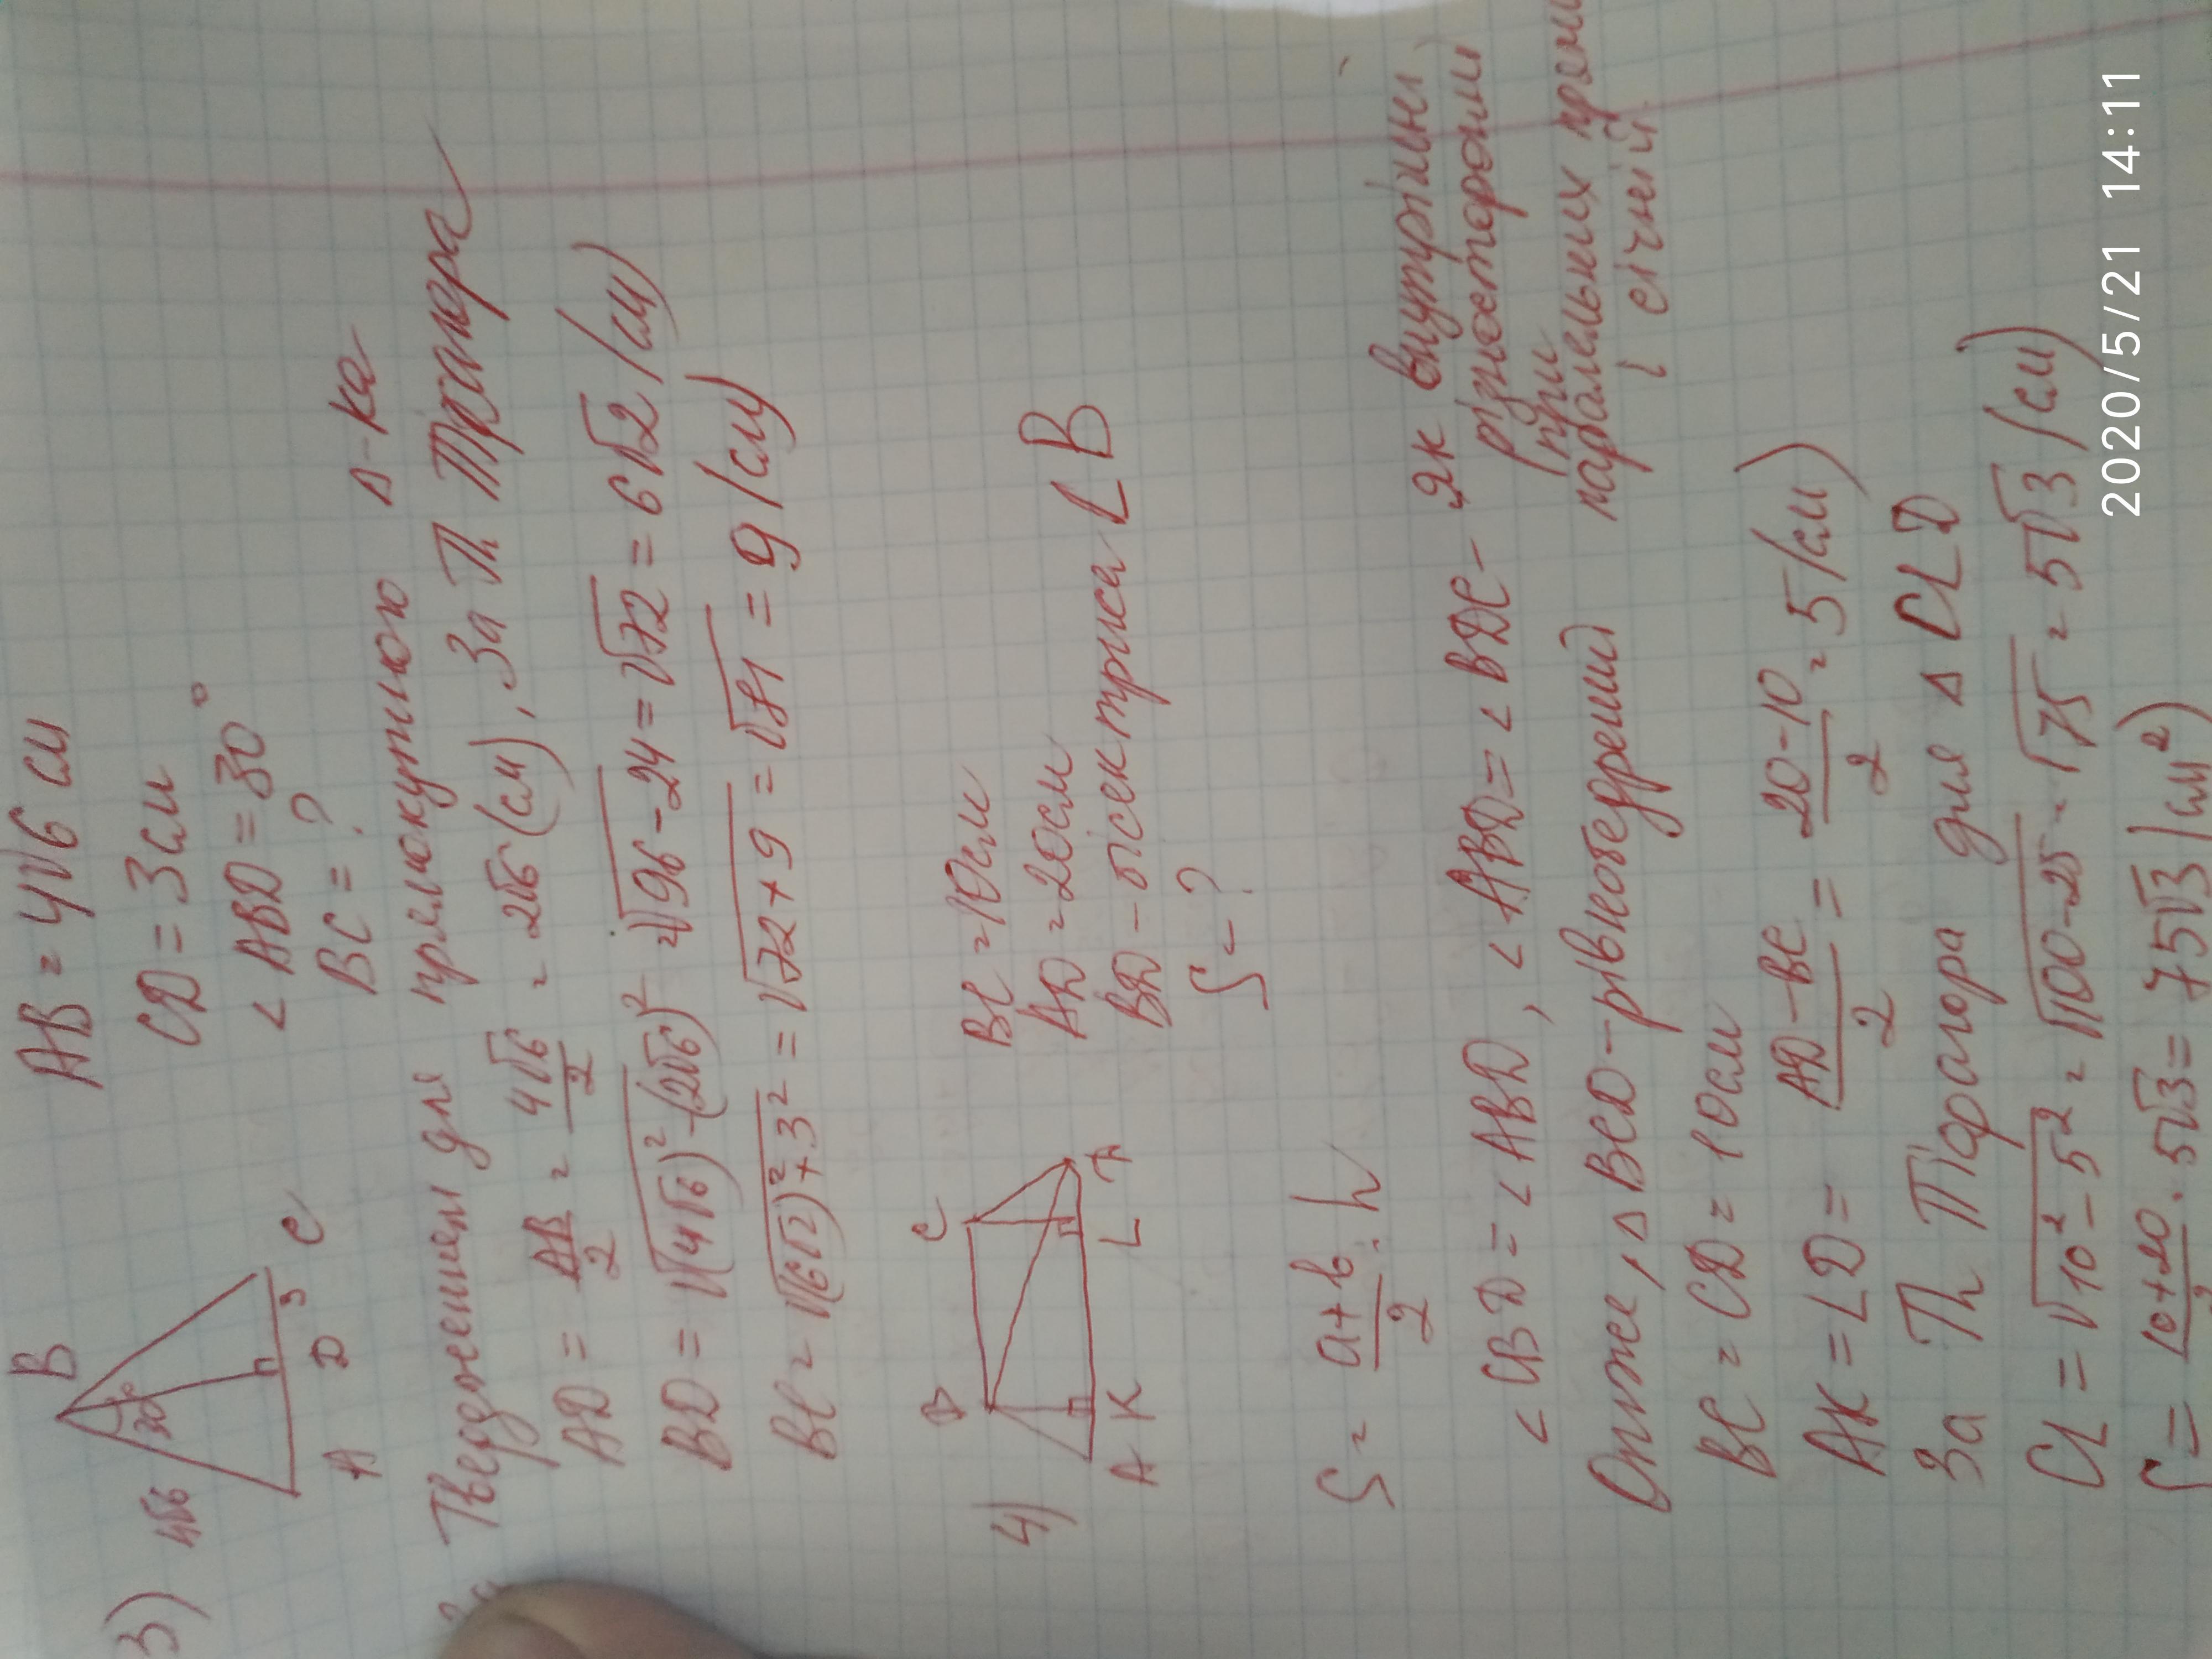 3)
AB = 4√6 см
CD = 3 см
∠ABD = 30°
BC = ?
4√6
B
30°
A D 3 C
За Твердженням для прямокутного Δ-ка
AD = AB/2 = 4√6/2 = 2√6 (см), За Th Піфагора
BD = √((4√6)² - (2√6)²) = √(96-24) = √72 = 6√2 (см)
BC = √((6√2)² + 3²) = √(72+9) = √81 = 9 (см)
4)
B C
A K L D
BC = 10см
AD = 20см
BD - бісектриса ∠B
S - ?
S = (a+b)/2 · h
∠CBD = ∠ABD, ∠ABD = ∠BDC - як внутрішні
різносторонні
при
паралельних прями
і січній
Отже, ΔBCD - рівнобедрений
BC = CD = 10см
AK = LD = (AD-BC)/2 = (20-10)/2 = 5 (см)
За Th Піфагора для ΔCLD
CL = √(10² - 5²) = √(100-25) = √75 = 5√3 (см)
S = (10+20)/2 · 5√3 = 75√3 (см²)
2020/5/21 14:11